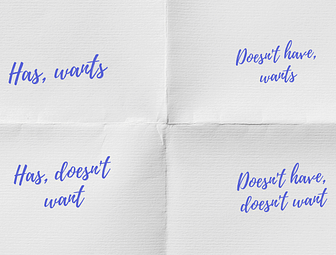 Has, wants
Doesn't have,
wants
Has, doesn't
want
Doesn't have,
doesn't want